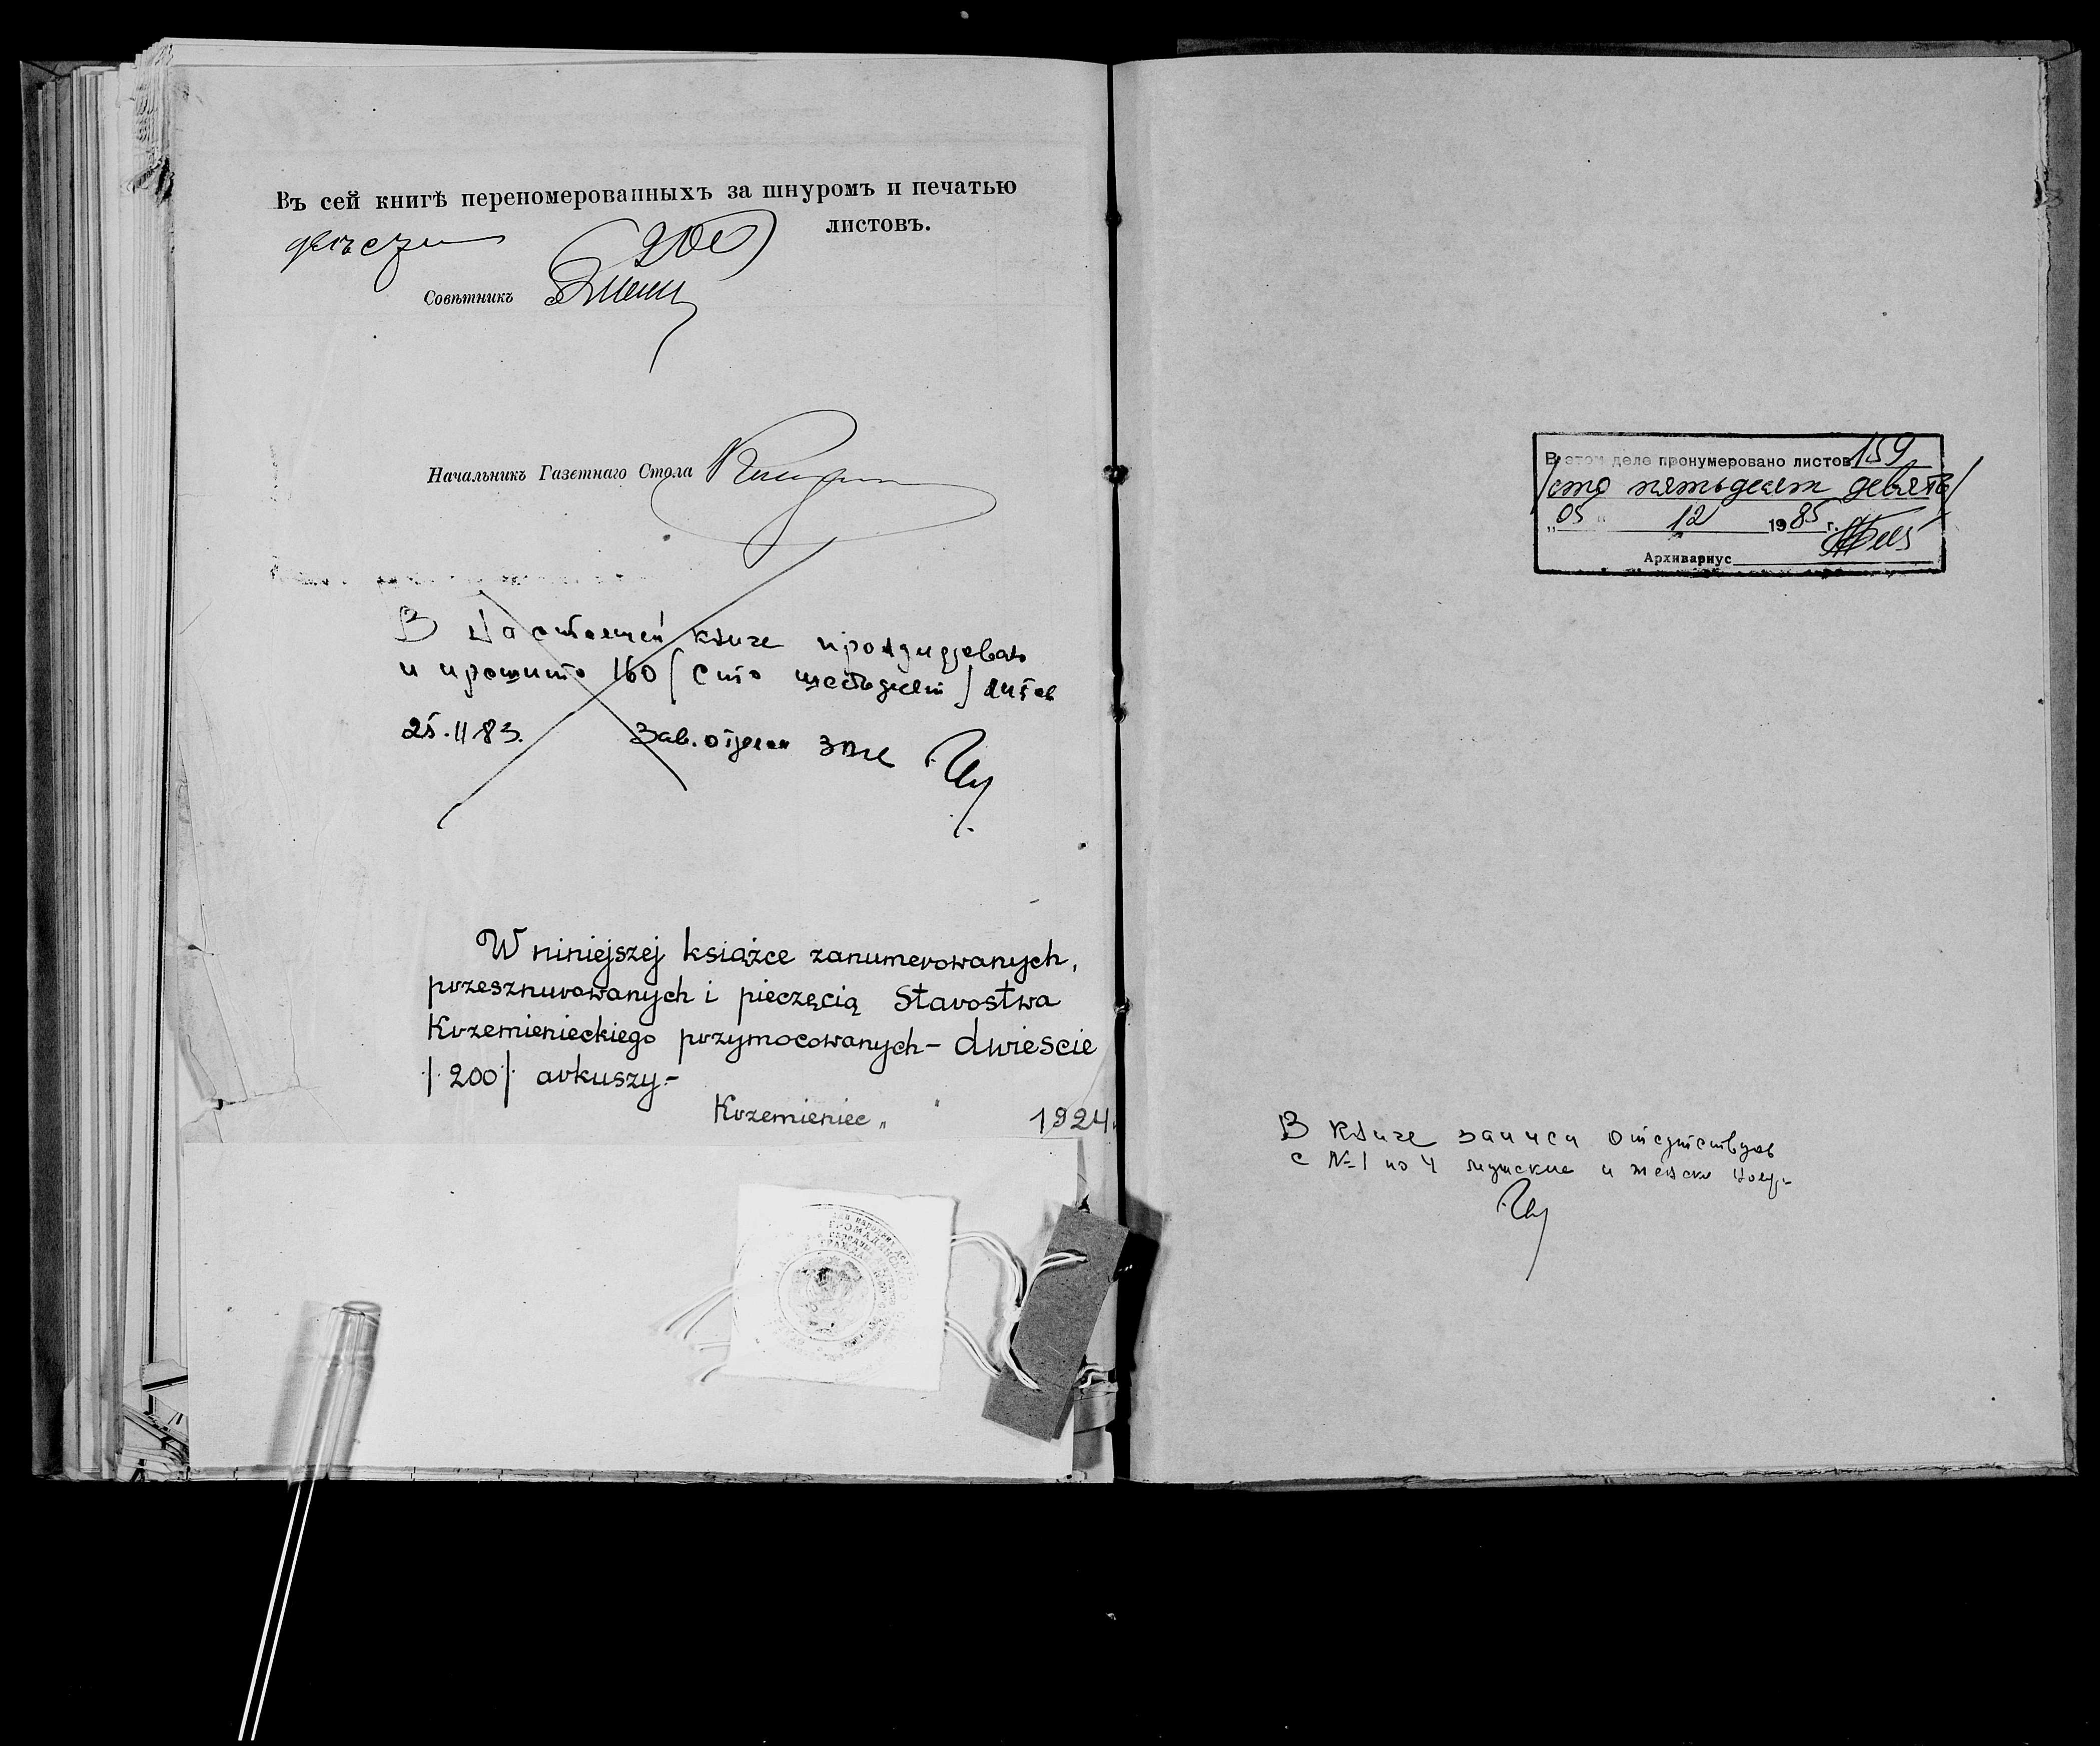 Въ сей книгѣ переномерованныхъ за шнуромъ и печатью
двѣсти (200) листовъ.
Совѣтникъ
Начальникъ Газетнаго Стола
В настоящей книге
и прошито 160 (сто шестьдесят) листов
25.11.83. Зав. отделом ЗАГС
W niniejszej książce zanumerowanych,
przesznurowanych i pieczęcią Starostwa
Krzemienieckiego przymocowanych – dwieście
/200/ arkuszy.–
Krzemieniec „ " 1924.
В этом деле пронумеровано листов 159
/сто пятьдесят девять/
„05" 12 1985 г.
Архивариус
В книге записи отсутствуют
с №1 по 4 мужские и женск